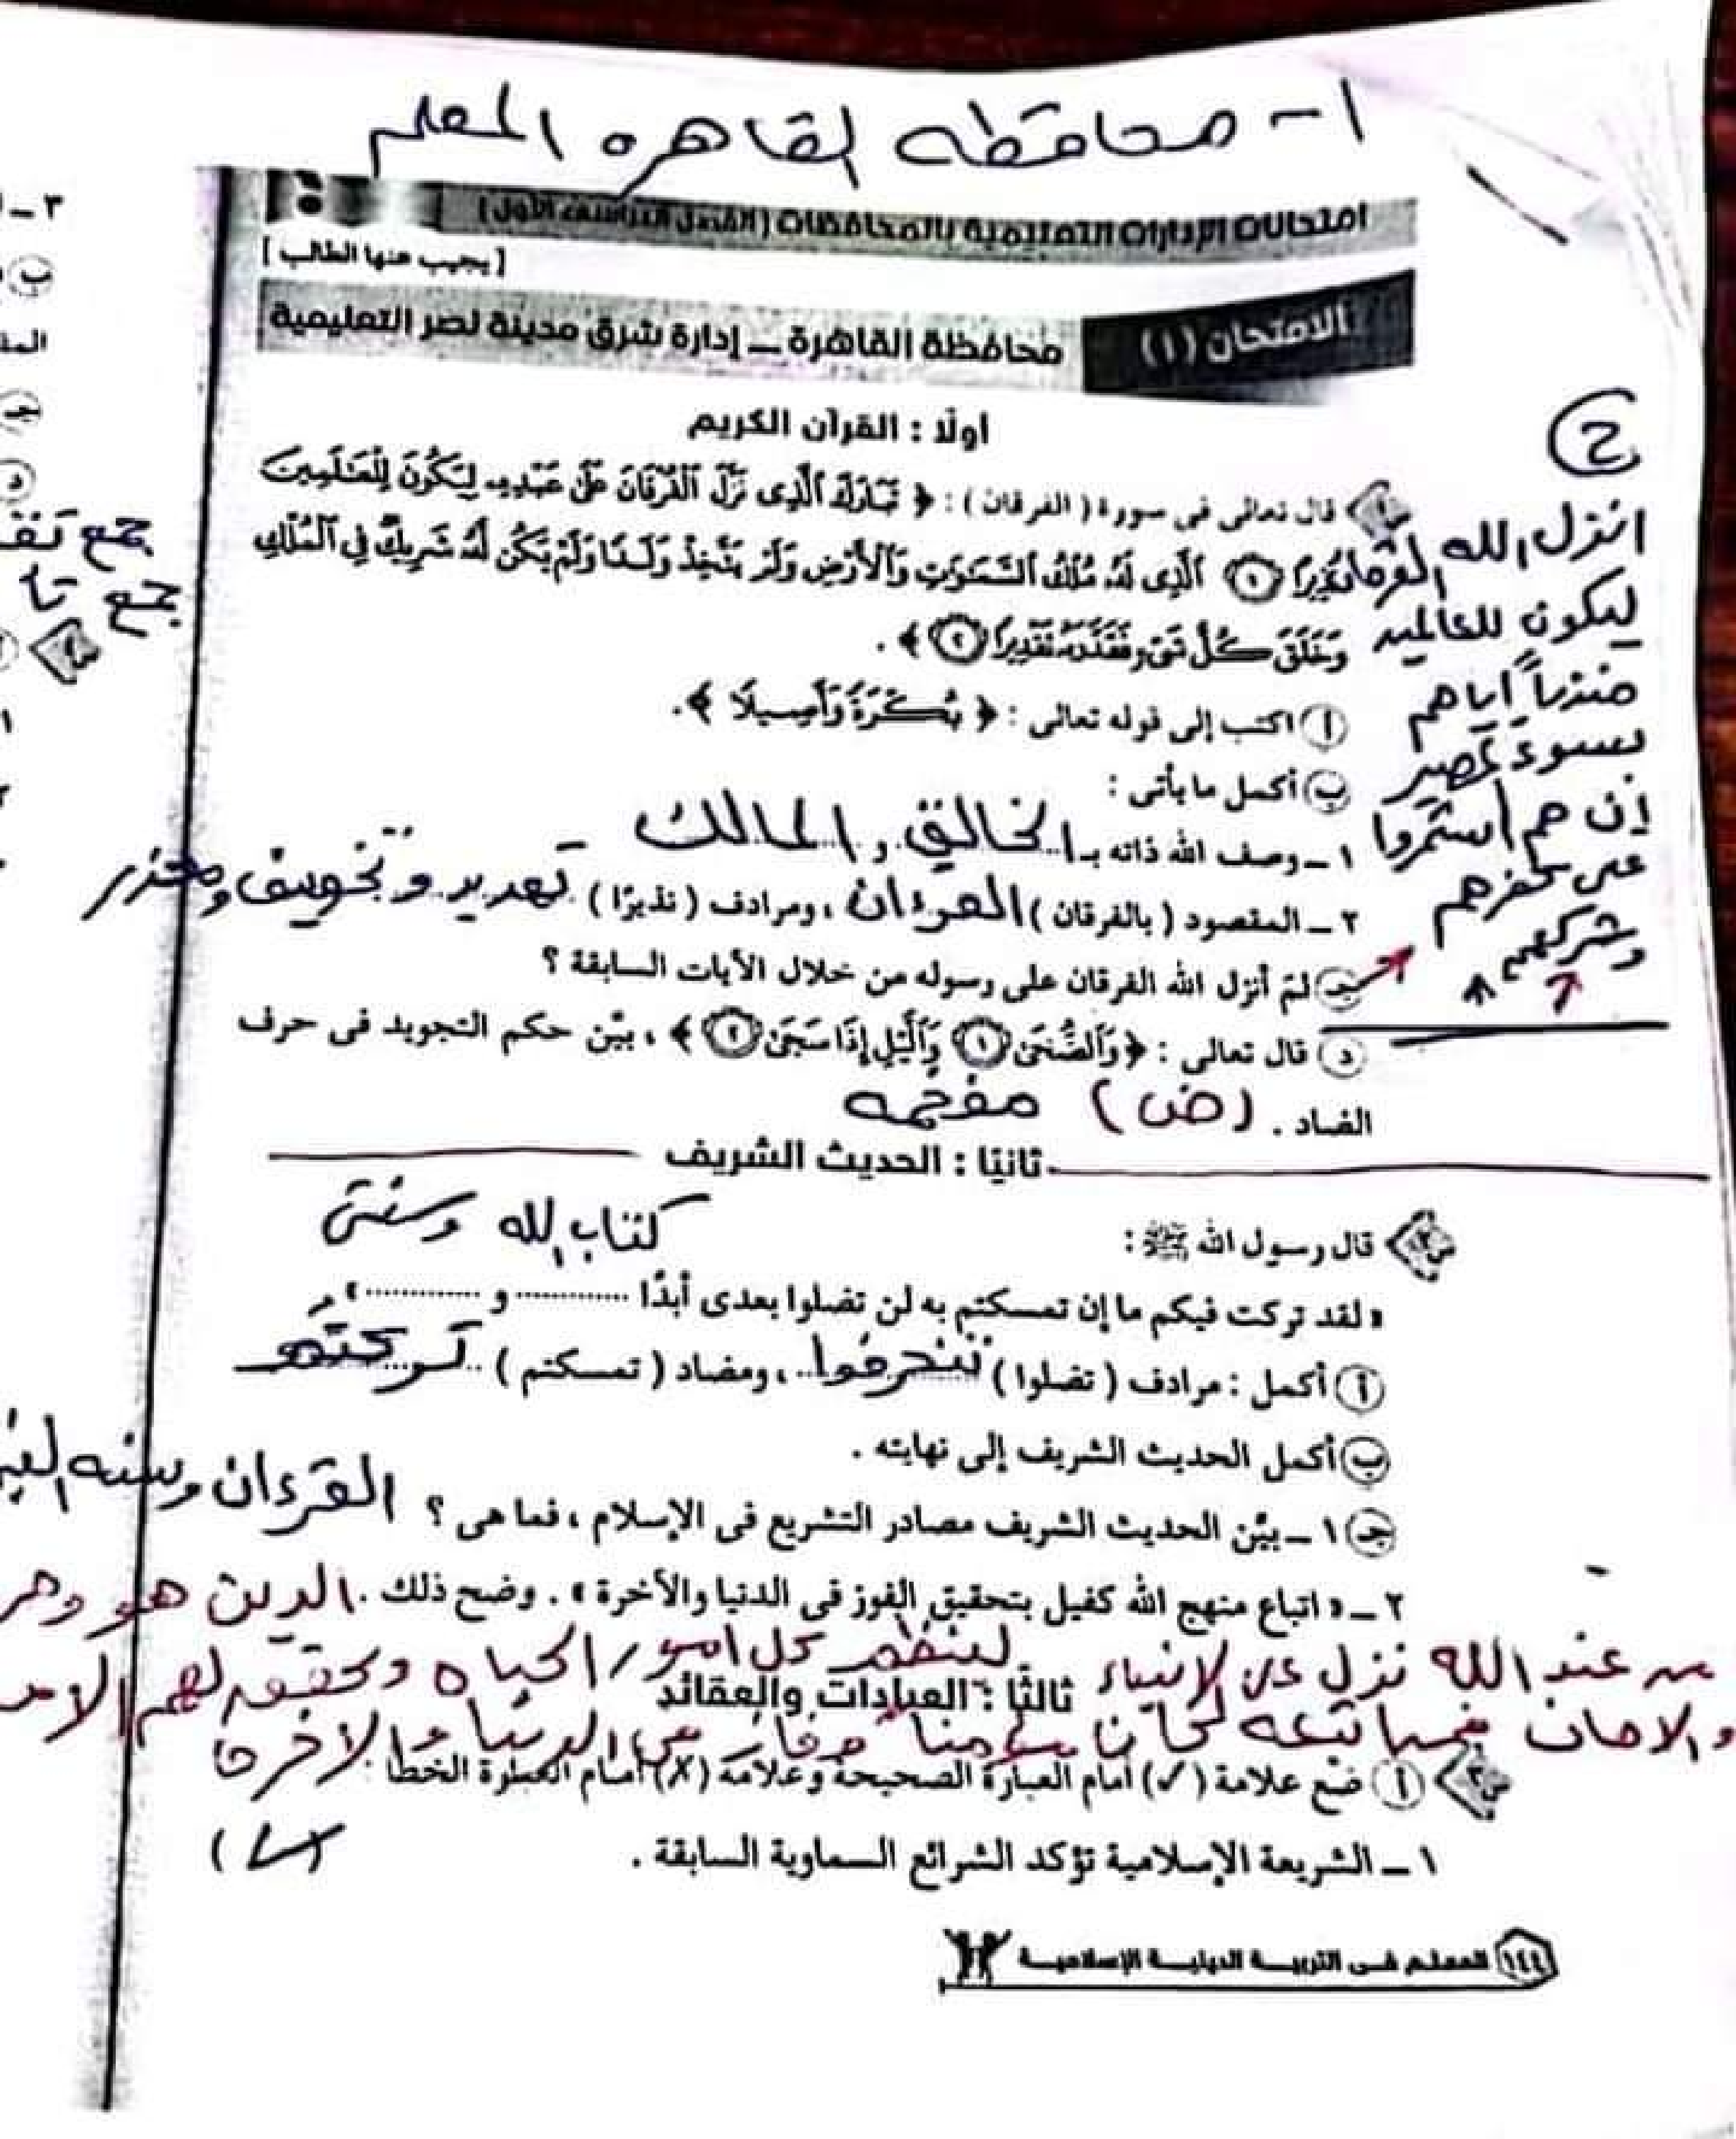 ١ - محافظه القاهره المعلم
امتحانات الإدارات التعليمية بالمحافظات (الفصل الدراسى الأول)
[ يجيب عنها الطالب ]
الامتحان (١) محافظة القاهرة ـ إدارة شرق مدينة نصر التعليمية
أولًا : القرآن الكريم
١ قال تعالى فى سورة ( الفرقان ) : ﴿ تَبَارَكَ ٱلَّذِى نَزَّلَ ٱلْفُرْقَانَ عَلَىٰ عَبْدِهِۦ لِيَكُونَ لِلْعَـٰلَمِينَ
نَذِيرًا ١ ٱلَّذِى لَهُۥ مُلْكُ ٱلسَّمَـٰوَٰتِ وَٱلْأَرْضِ وَلَمْ يَتَّخِذْ وَلَدًا وَلَمْ يَكُن لَّهُۥ شَرِيكٌ فِى ٱلْمُلْكِ
وَخَلَقَ كُلَّ شَىْءٍ فَقَدَّرَهُۥ تَقْدِيرًا ٢ ﴾ .
أ اكتب إلى قوله تعالى : ﴿ بُكْرَةً وَأَصِيلًا ﴾ .
ب أكمل ما يأتى :
١ ـ وصف الله ذاته بـ الخالق و المالك
٢ ـ المقصود ( بالفرقان ) القرءان ، ومرادف ( نذيرًا ) تهديد وتخويف ومحذر
جـ لمَ أنزل الله الفرقان على رسوله من خلال الآيات السابقة ؟
ج
انزل الله الفرقان
ليكون للعالمين
منذرا اياهم
بسوء المصير
إن هم استمروا
على كفرهم
وشركهم
د قال تعالى : ﴿ وَٱلضُّحَىٰ ١ وَٱلَّيْلِ إِذَا سَجَىٰ ٢ ﴾ ، بيِّن حكم التجويد فى حرف
الضاد . ( ض ) مفخمه
ثانيًا : الحديث الشريف
٢ قال رسول الله ﷺ :
كتاب الله وسنتى
« لقد تركت فيكم ما إن تمسكتم به لن تضلوا بعدى أبدًا ............ و ............ » .
أ أكمل : مرادف ( تضلوا ) تنحرفوا ، ومضاد ( تمسكتم ) تركتم
ب أكمل الحديث الشريف إلى نهايته .
جـ ١ ـ بيَّن الحديث الشريف مصادر التشريع فى الإسلام ، فما هى ؟ القرءان وسنه
٢ ـ « اتباع منهج الله كفيل بتحقيق الفوز فى الدنيا والآخرة » . وضح ذلك . الدين هو
من عند الله نزل على الانبياء لينظم كل امور الحياه ويحقق لهم
والامان فمن اتبعه كان مؤمنا وفاز فى الدنيا والاخرة
ثالثًا : العبادات والعقائد
٣ أ ضع علامة (✓) أمام العبارة الصحيحة وعلامة (✗) أمام العبارة الخطأ :
١ ـ الشريعة الإسلامية تؤكد الشرائع السماوية السابقة . ( ✓ )
١٤٤ المعلم فى التربية الدينية الإسلامية
٣ ـ
ب
جـ
د
جمع
جمع